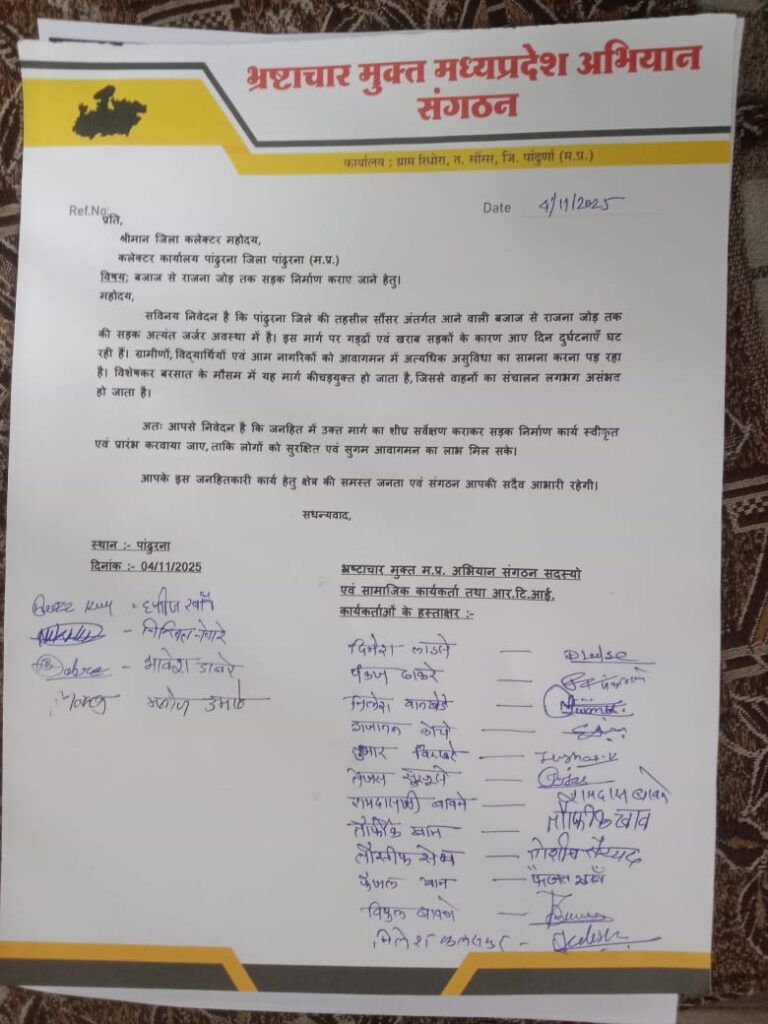 भ्रष्टाचार मुक्त मध्यप्रदेश अभियान
संगठन
कार्यालय : ग्राम रिधोरा, त. सौंसर, जि. पांढुर्णा (म.प्र.)
Ref.No:
Date 4/11/2025
प्रति,
श्रीमान जिला कलेक्टर महोदय,
कलेक्टर कार्यालय पांढुरना जिला पांढुरना (म.प्र.)
विषय: बजाज से राजना जोड़ तक सड़क निर्माण कराए जाने हेतु।
महोदय,
सविनय निवेदन है कि पांढुरना जिले की तहसील सौंसर अंतर्गत आने वाली बजाज से राजना जोड़ तक
की सड़क अत्यंत जर्जर अवस्था में है। इस मार्ग पर गड्ढों एवं खराब सड़कों के कारण आए दिन दुर्घटनाएँ घट
रही हैं। ग्रामीणों, विद्यार्थियों एवं आम नागरिकों को आवागमन में अत्यधिक असुविधा का सामना करना पड़ रहा
है। विशेषकर बरसात के मौसम में यह मार्ग कीचड़युक्त हो जाता है, जिससे वाहनों का संचालन लगभग असंभव
हो जाता है।
अतः आपसे निवेदन है कि जनहित में उक्त मार्ग का शीघ्र सर्वेक्षण कराकर सड़क निर्माण कार्य स्वीकृत
एवं प्रारंभ करवाया जाए, ताकि लोगों को सुरक्षित एवं सुगम आवागमन का लाभ मिल सके।
आपके इस जनहितकारी कार्य हेतु क्षेत्र की समस्त जनता एवं संगठन आपकी सदैव आभारी रहेगी।
सधन्यवाद,
स्थान :- पांढुरना
दिनांक :- 04/11/2025
भ्रष्टाचार मुक्त म.प्र. अभियान संगठन सदस्यो
एवं सामाजिक कार्यकर्ता तथा आर.टि.आई.
कार्यकर्ताओं के हस्ताक्षर :-
भावेश डाबरे
मनोज
दिनेश
पंकज ठाकरे
निलेश वानखेडे
गजानन
तुषार
तेजस
रामदासजी बावने — रामदास बावने
तौफीक खान — तौफीक खान
तौसीफ
फैजल खान
विपुल बावने